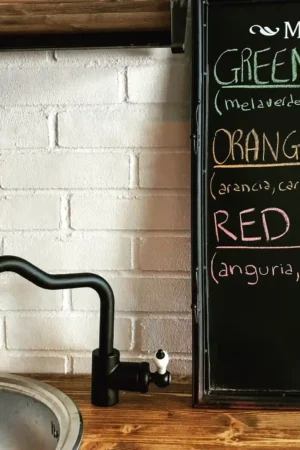 M
GREEN
(melaverde
ORANG
(arancia, car
RED
(anguria,